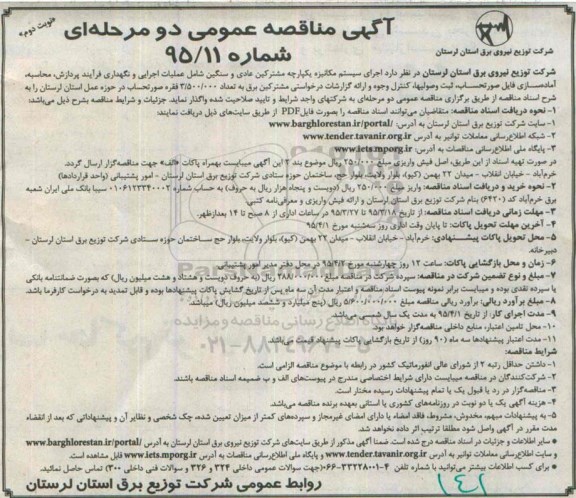 آگهی مناقصه عمومی دو مرحله‌ای
شماره ۹۵/۱۱
«نوبت دوم»
شرکت توزیع نیروی برق استان لرستان
شرکت توزیع نیروی برق استان لرستان در نظر دارد اجرای سیستم مکانیزه یکپارچه مشترکین عادی و سنگین شامل عملیات اجرایی و نگهداری فرآیند پردازش، محاسبه،
آماده‌سازی فایل صورتحساب، ثبت وصولیها، کنترل وجوه و ارائه گزارشات درخواستی مشترکین برق به تعداد ۳/۵۰۰/۰۰۰ فقره صورتحساب در حوزه عمل استان لرستان را به
شرح اسناد مناقصه از طریق برگزاری مناقصه عمومی دو مرحله‌ای به شرکتهای واجد شرایط و تایید صلاحیت شده واگذار نماید. جزئیات و شرایط مناقصه بشرح ذیل می‌باشد:
۱- نحوه دریافت اسناد مناقصه: متقاضیان می‌توانند اسناد مناقصه را بصورت فایل PDF از طریق سایت‌های ذیل دریافت نمایند:
۱- سایت شرکت توزیع برق استان لرستان به آدرس: www.barghlorestan.ir/portal/
۲- شبکه اطلاع‌رسانی معاملات توانیر به آدرس www.tender.tavanir.org.ir
۳- پایگاه ملی اطلاع‌رسانی مناقصات به آدرس www.iets.mporg.ir
در صورت تهیه اسناد از این طریق، اصل فیش واریزی مبلغ ۲۵۰/۰۰۰ ریال موضوع بند ۲ این آگهی میبایست بهمراه پاکات «الف» جهت مناقصه‌گزار ارسال گردد.
خرم‌آباد - خیابان انقلاب - میدان ۲۲ بهمن (کیو)، بلوار ولایت، بلوار حج، ساختمان حوزه ستادی شرکت توزیع برق استان لرستان - امور پشتیبانی (واحد قراردادها)
۲- نحوه خرید و دریافت اسناد مناقصه: واریز مبلغ ۲۵۰/۰۰۰ ریال (دویست و پنجاه هزار ریال به حروف) به حساب شماره ۰۱۰۶۱۲۳۳۴۰۰۰۲ سیبا بانک ملی ایران شعبه
برق خرم‌آباد کد (۶۴۲۰) بنام شرکت توزیع برق استان لرستان و ارائه فیش واریزی و معرفی‌نامه کتبی
۳- مهلت زمانی دریافت اسناد مناقصه: از تاریخ ۹۵/۳/۱۸ تا تاریخ ۹۵/۳/۲۷ در ساعات اداری از ۸ صبح تا ۱۴ بعدازظهر.
۴- آخرین مهلت تحویل پاکات: تا پایان وقت اداری روز سه‌شنبه مورخ ۹۵/۴/۱
۵- محل تحویل پاکات پیشنهادی: خرم‌آباد - خیابان انقلاب - میدان ۲۲ بهمن (کیو)، بلوار ولایت، بلوار حج ساختمان حوزه ستادی شرکت توزیع برق استان لرستان -
دبیرخانه.
۶- زمان و محل بازگشایی پاکات: ساعت ۱۲ روز چهارشنبه مورخ ۹۵/۴/۲ در محل دفتر مدیر امور پشتیبانی
۷- مبلغ و نوع تضمین شرکت در مناقصه: سپرده شرکت در مناقصه مبلغ ۲۸۸/۰۰۰/۰۰۰ ریال (به حروف دویست و هشتاد و هشت میلیون ریال) که بصورت ضمانتنامه بانکی
یا سپرده نقدی بوده و میبایست برابر نمونه پیوست اسناد مناقصه و اعتبار مدت آن سه ماه پس از تاریخ گشایش پاکات پیشنهادها بوده و قابل تمدید به درخواست کارفرما باشد.
۸- مبلغ برآورد ریالی: برآورد ریالی مناقصه مبلغ ۵/۶۰۰/۰۰۰/۰۰۰ ریال (پنج میلیارد و ششصد میلیون ریال) میباشد.
۹- مدت اجرای کار: از تاریخ ۹۵/۴/۱ به مدت یک سال شمسی می‌باشد.
۱۰- محل تامین اعتبار، منابع داخلی مناقصه‌گزار خواهد بود.
۱۱- مدت اعتبار پیشنهادها سه ماه (۹۰ روز) از تاریخ بازگشایی پاکات پیشنهاد قیمت می‌باشد.
شرایط مناقصه:
۱- داشتن حداقل رتبه ۲ از شورای عالی انفورماتیک کشور در رابطه با موضوع مناقصه الزامی است.
۲- شرکت‌کنندگان در مناقصه میبایست دارای شرایط اختصاصی مندرج در پیوست‌های الف و ب ضمیمه اسناد مناقصه باشند.
۳- مناقصه‌گزار در رد یا قبول یک یا تمام پیشنهادات رسیده مختار است.
۴- هزینه آگهی یک یا دو نوبت در روزنامه‌های کشوری یا استانی بعهده برنده مناقصه می‌باشد.
۵- به پیشنهادات مبهم، مخدوش، مشروط، فاقد امضاء یا دارای امضای غیرمجاز و سپرده‌های کمتر از میزان تعیین شده، چک شخصی و نظایر آن و پیشنهاداتی که بعد از انقضاء
مدت مقرر در آگهی واصل شود مطلقا ترتیب اثر داده نخواهد شد.
* سایر اطلاعات و جزئیات در اسناد مناقصه درج شده است. ضمنا آگهی مذکور از طریق سایت‌های شرکت توزیع نیروی برق استان لرستان به آدرس www.barghlorestan.ir/portal/
و سایت اطلاع رسانی معاملات توانیر به آدرس www.tender.tavanir.org.ir و پایگاه ملی اطلاع‌رسانی مناقصات به آدرس www.iets.mporg.ir قابل مشاهده است.
* برای کسب اطلاعات بیشتر می‌توانید با شماره تلفن ۴-۳۳۲۲۸۰۰۱-۰۶۶ (جهت سوالات عمومی داخلی ۳۲۴ و ۳۲۶ و سوالات فنی داخلی ۳۰۰) تماس حاصل نمائید.
روابط عمومی شرکت توزیع برق استان لرستان
۱۴۱